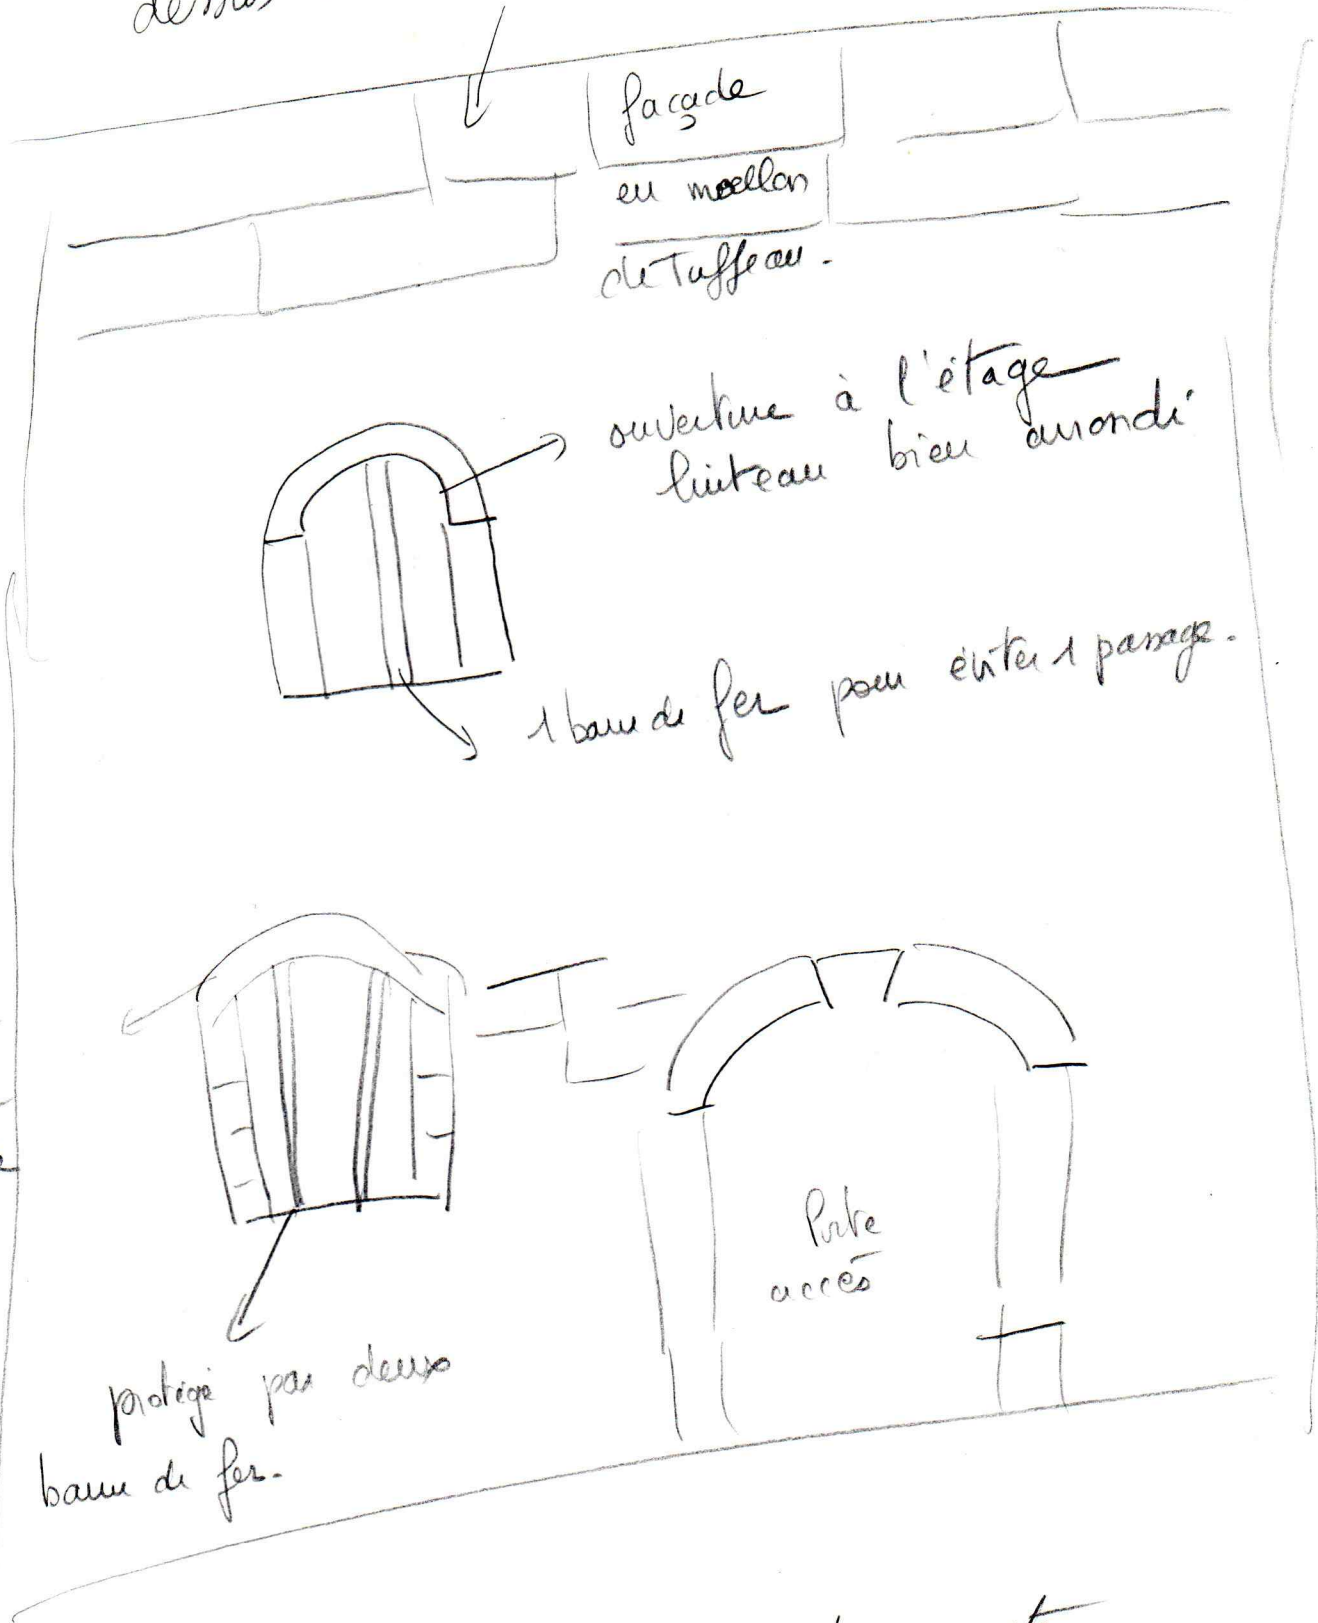 façade
en moellon
de Tuffeau.
ouverture à l'étage
linteau bien arrondi
1 barre de fer pour éviter 1 passage.
Porte
accès
protégé par deux
barre de fer.